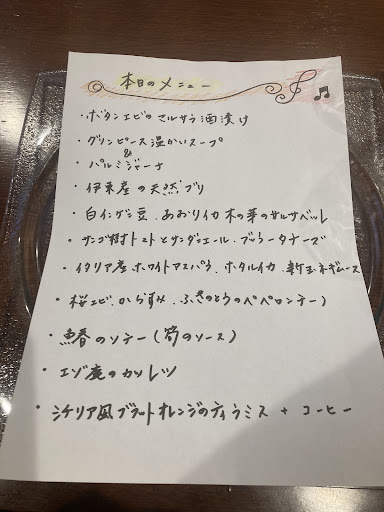 本日のメニュー
・ボタンエビのマルサラ酒漬け
・グリンピース温かいスープ
&
・パルミジャーナ
・伊東産の天然ブリ
・白インゲン豆、あおりイカ木の芽のサルサベルト
・サンゴ樹トマトとサンダニエール、ブッラータチーズ
・イタリア産ホワイトアスパラ、ホタルイカ、新玉ネギムース
・桜エビ、からすみ、ふきのとうのペペロンチーノ
・鰆のソテー(筍のソース)
・エゾ鹿のカツレツ
・シチリア風ブラッドオレンジのティラミス + コーヒー